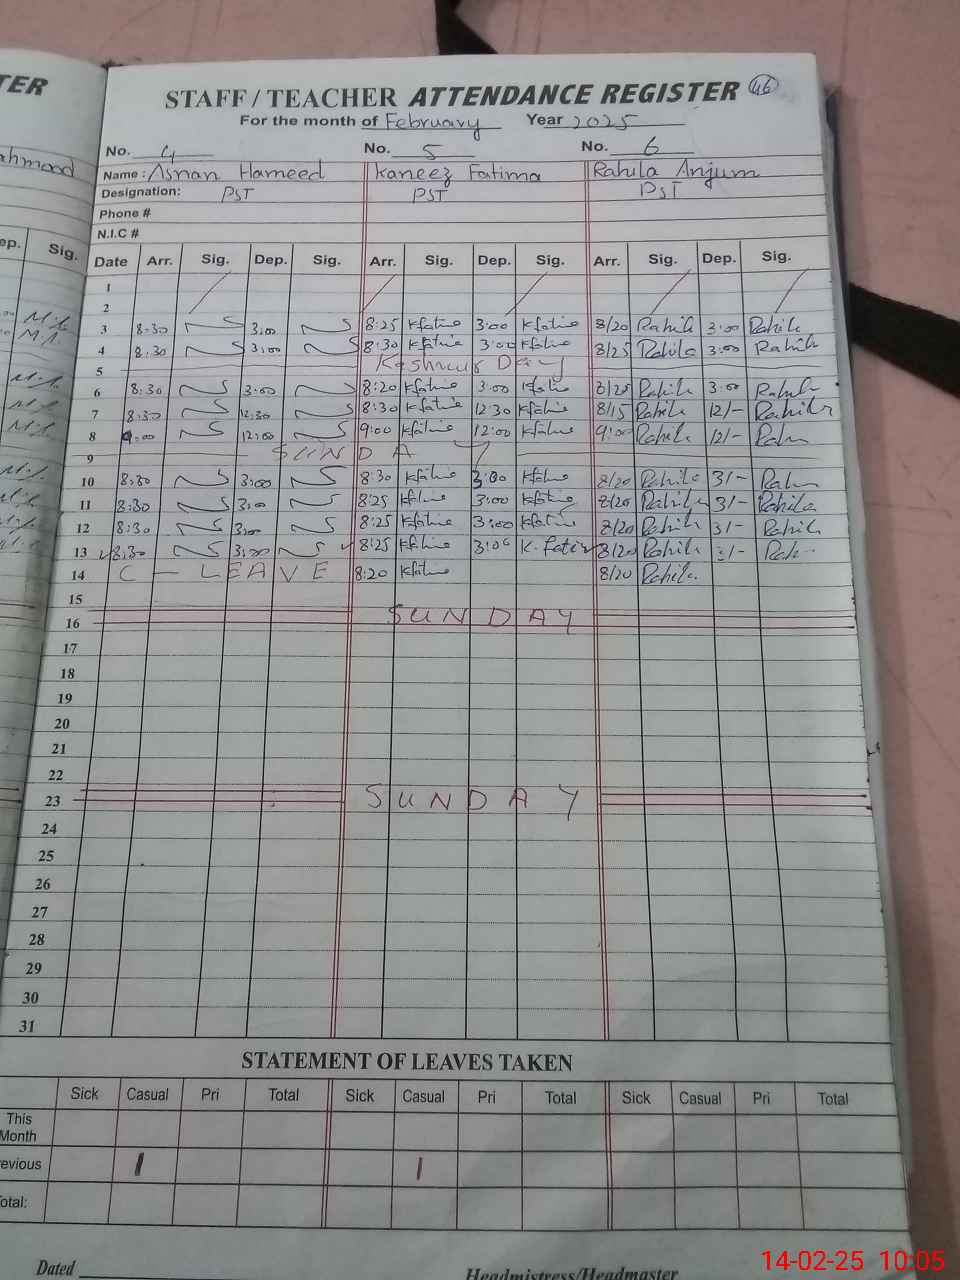 TER
STAFF / TEACHER ATTENDANCE REGISTER 46
For the month of February Year 2025
ahmood
No. 4 No. 5 No. 6
Name : Asnan Hameed Kaneez Fatima Rahila Anjum
Designation: PST PST PST
Phone #
N.I.C #
ep. Sig. Date Arr. Sig. Dep. Sig. Arr. Sig. Dep. Sig. Arr. Sig. Dep. Sig.
1
2
3 8:30 3:00 8:25 Kfatima 3:00 Kfatima 8/20 Rahila 3:00 Rahila
4 8:30 3:00 8:30 Kfatima 3:00 Kfatima 8/25 Rahila 3:00 Rahila
5 Kashmir Day
6 8:30 3:00 8:20 Kfatima 3:00 Kfatima 8/25 Rahila 3:00 Rahila
7 8:30 12:30 8:30 Kfatima 12:30 Kfatima 8/15 Rahila 12/- Rahila
8 9:00 12:00 9:00 Kfatima 12:00 Kfatima 9:00 Rahila 12/-
9 SUNDAY
10 8:30 3:00 8:30 Kfatima 3:00 Kfatima 8/20 Rahila 3/-
11 8:30 3:00 8:25 Kfatima 3:00 Kfatima 8/20 Rahila 3/- Rahila
12 8:30 3:00 8:25 Kfatima 3:00 Kfatima 8/20 Rahila 3/- Rahila
13 8:30 3:00 8:25 Kfatima 3:00 K. Fatima 8/20 Rahila 3/-
14 C - LEAVE 8:20 Kfatima 8/20 Rahila
15
16 SUNDAY
17
18
19
20
21
22
23 SUNDAY
24
25
26
27
28
29
30
31
STATEMENT OF LEAVES TAKEN
Sick Casual Pri Total Sick Casual Pri Total Sick Casual Pri Total
This
Month
evious 1 1
otal:
Dated Headmistress/Headmaster
14-02-25 10:05